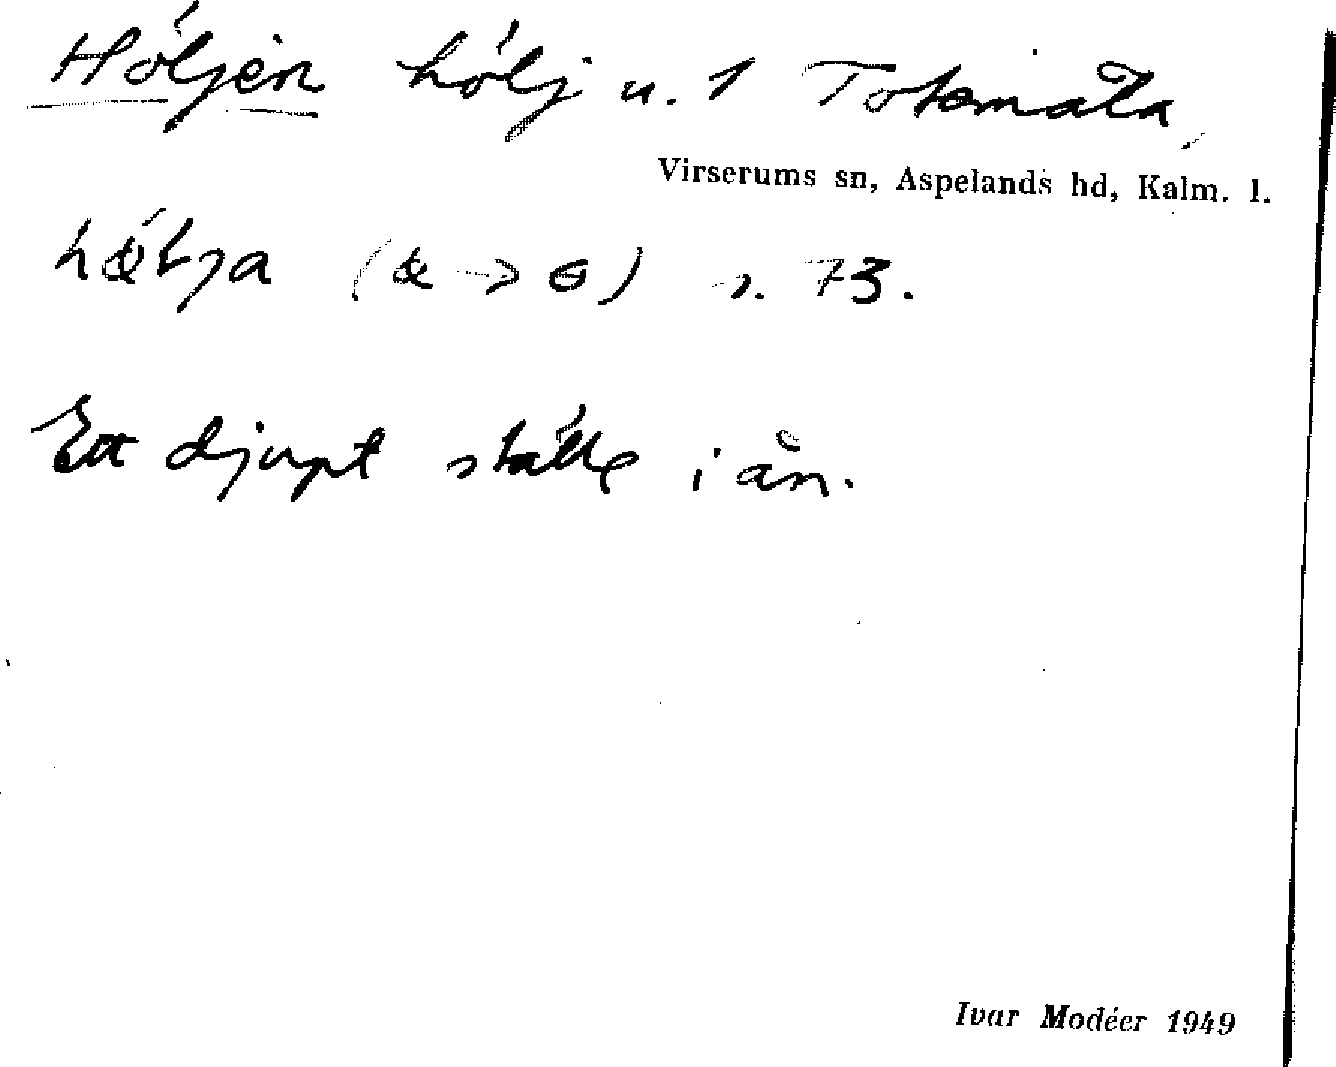 Höljen hölj u. 1 Totemåla,
Virserums sn, Aspelands hd, Kalm. l.
(æ → ɵ) s. 73.
Ett djupt ställe i ån.
Ivar Modéer 1949